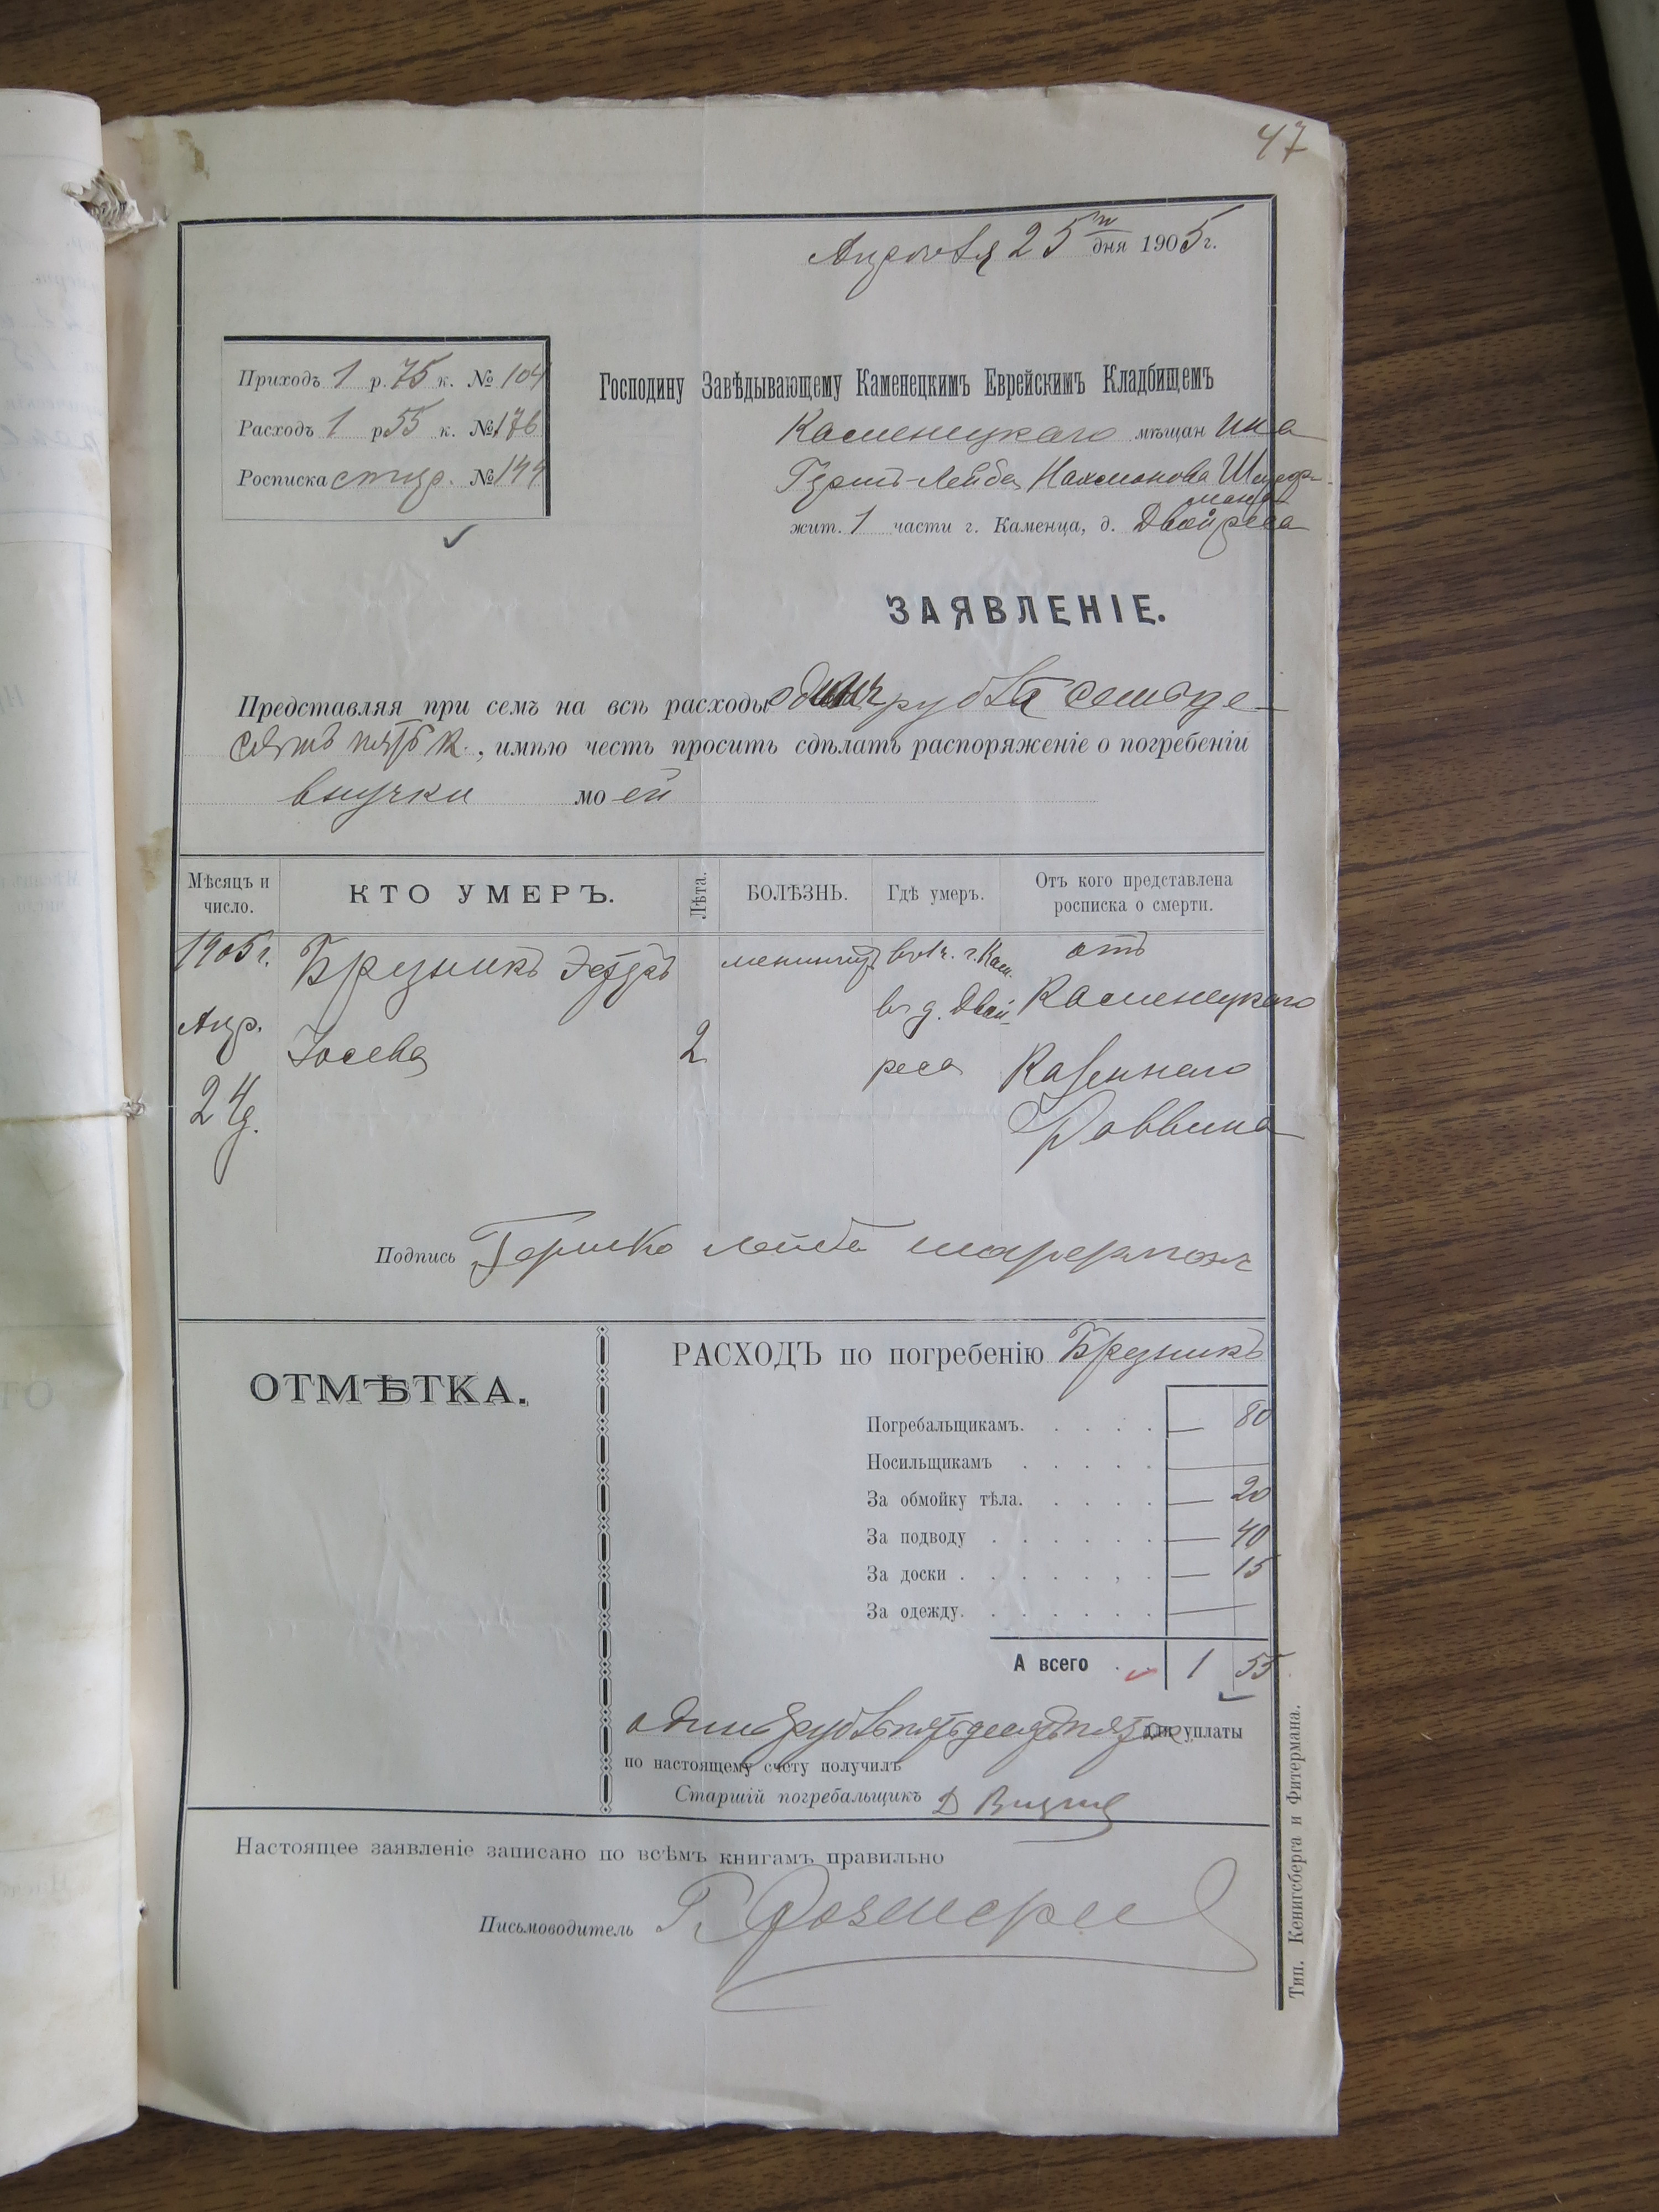 47
Апрѣля 25 го дня 1905 г.
Приходъ 1 р. 75 к. № 104
Расходъ 1 р 55 к. № 176
Росписка № 144
Господину Завѣдывающему Каменецкимъ Еврейскимъ Кладбищемъ
Каменецкаго мѣщанина
Лейба Нахманова
жит. 1 части г. Каменца, д. Двойреса
ЗАЯВЛЕНІЕ.
Представляя при семъ на всѣ расходы одинъ рубль семьде-
сятъ пять к., имѣю честь просить сдѣлать распоряженіе о погребеніи
внучки моей
Мѣсяцъ и число.
КТО УМЕРЪ.
Лѣта.
БОЛѢЗНЬ.
Гдѣ умеръ.
Отъ кого представлена росписка о смерти.
1905 г. менингитъ в 1 ч. г. Кам. отъ
Апр. в д. Двой- Каменецкаго
Іосева 2 реса Казеннаго
24 д. Раввина
Подпись Гершко лейба
ОТМѢТКА.
РАСХОДЪ по погребенію
Погребальщикамъ. — 80
Носильщикамъ —
За обмойку тѣла. — 20
За подводу — 40
За доски — 15
За одежду. —
А всего 1 55
одинъ рубль пятьдесятъ пять к. для уплаты
по настоящему счету получилъ
Старшій погребальщикъ Д
Настоящее заявленіе записано по всѣмъ книгамъ правильно
Письмоводитель
Тип. Кенигсберга и Фитермана.